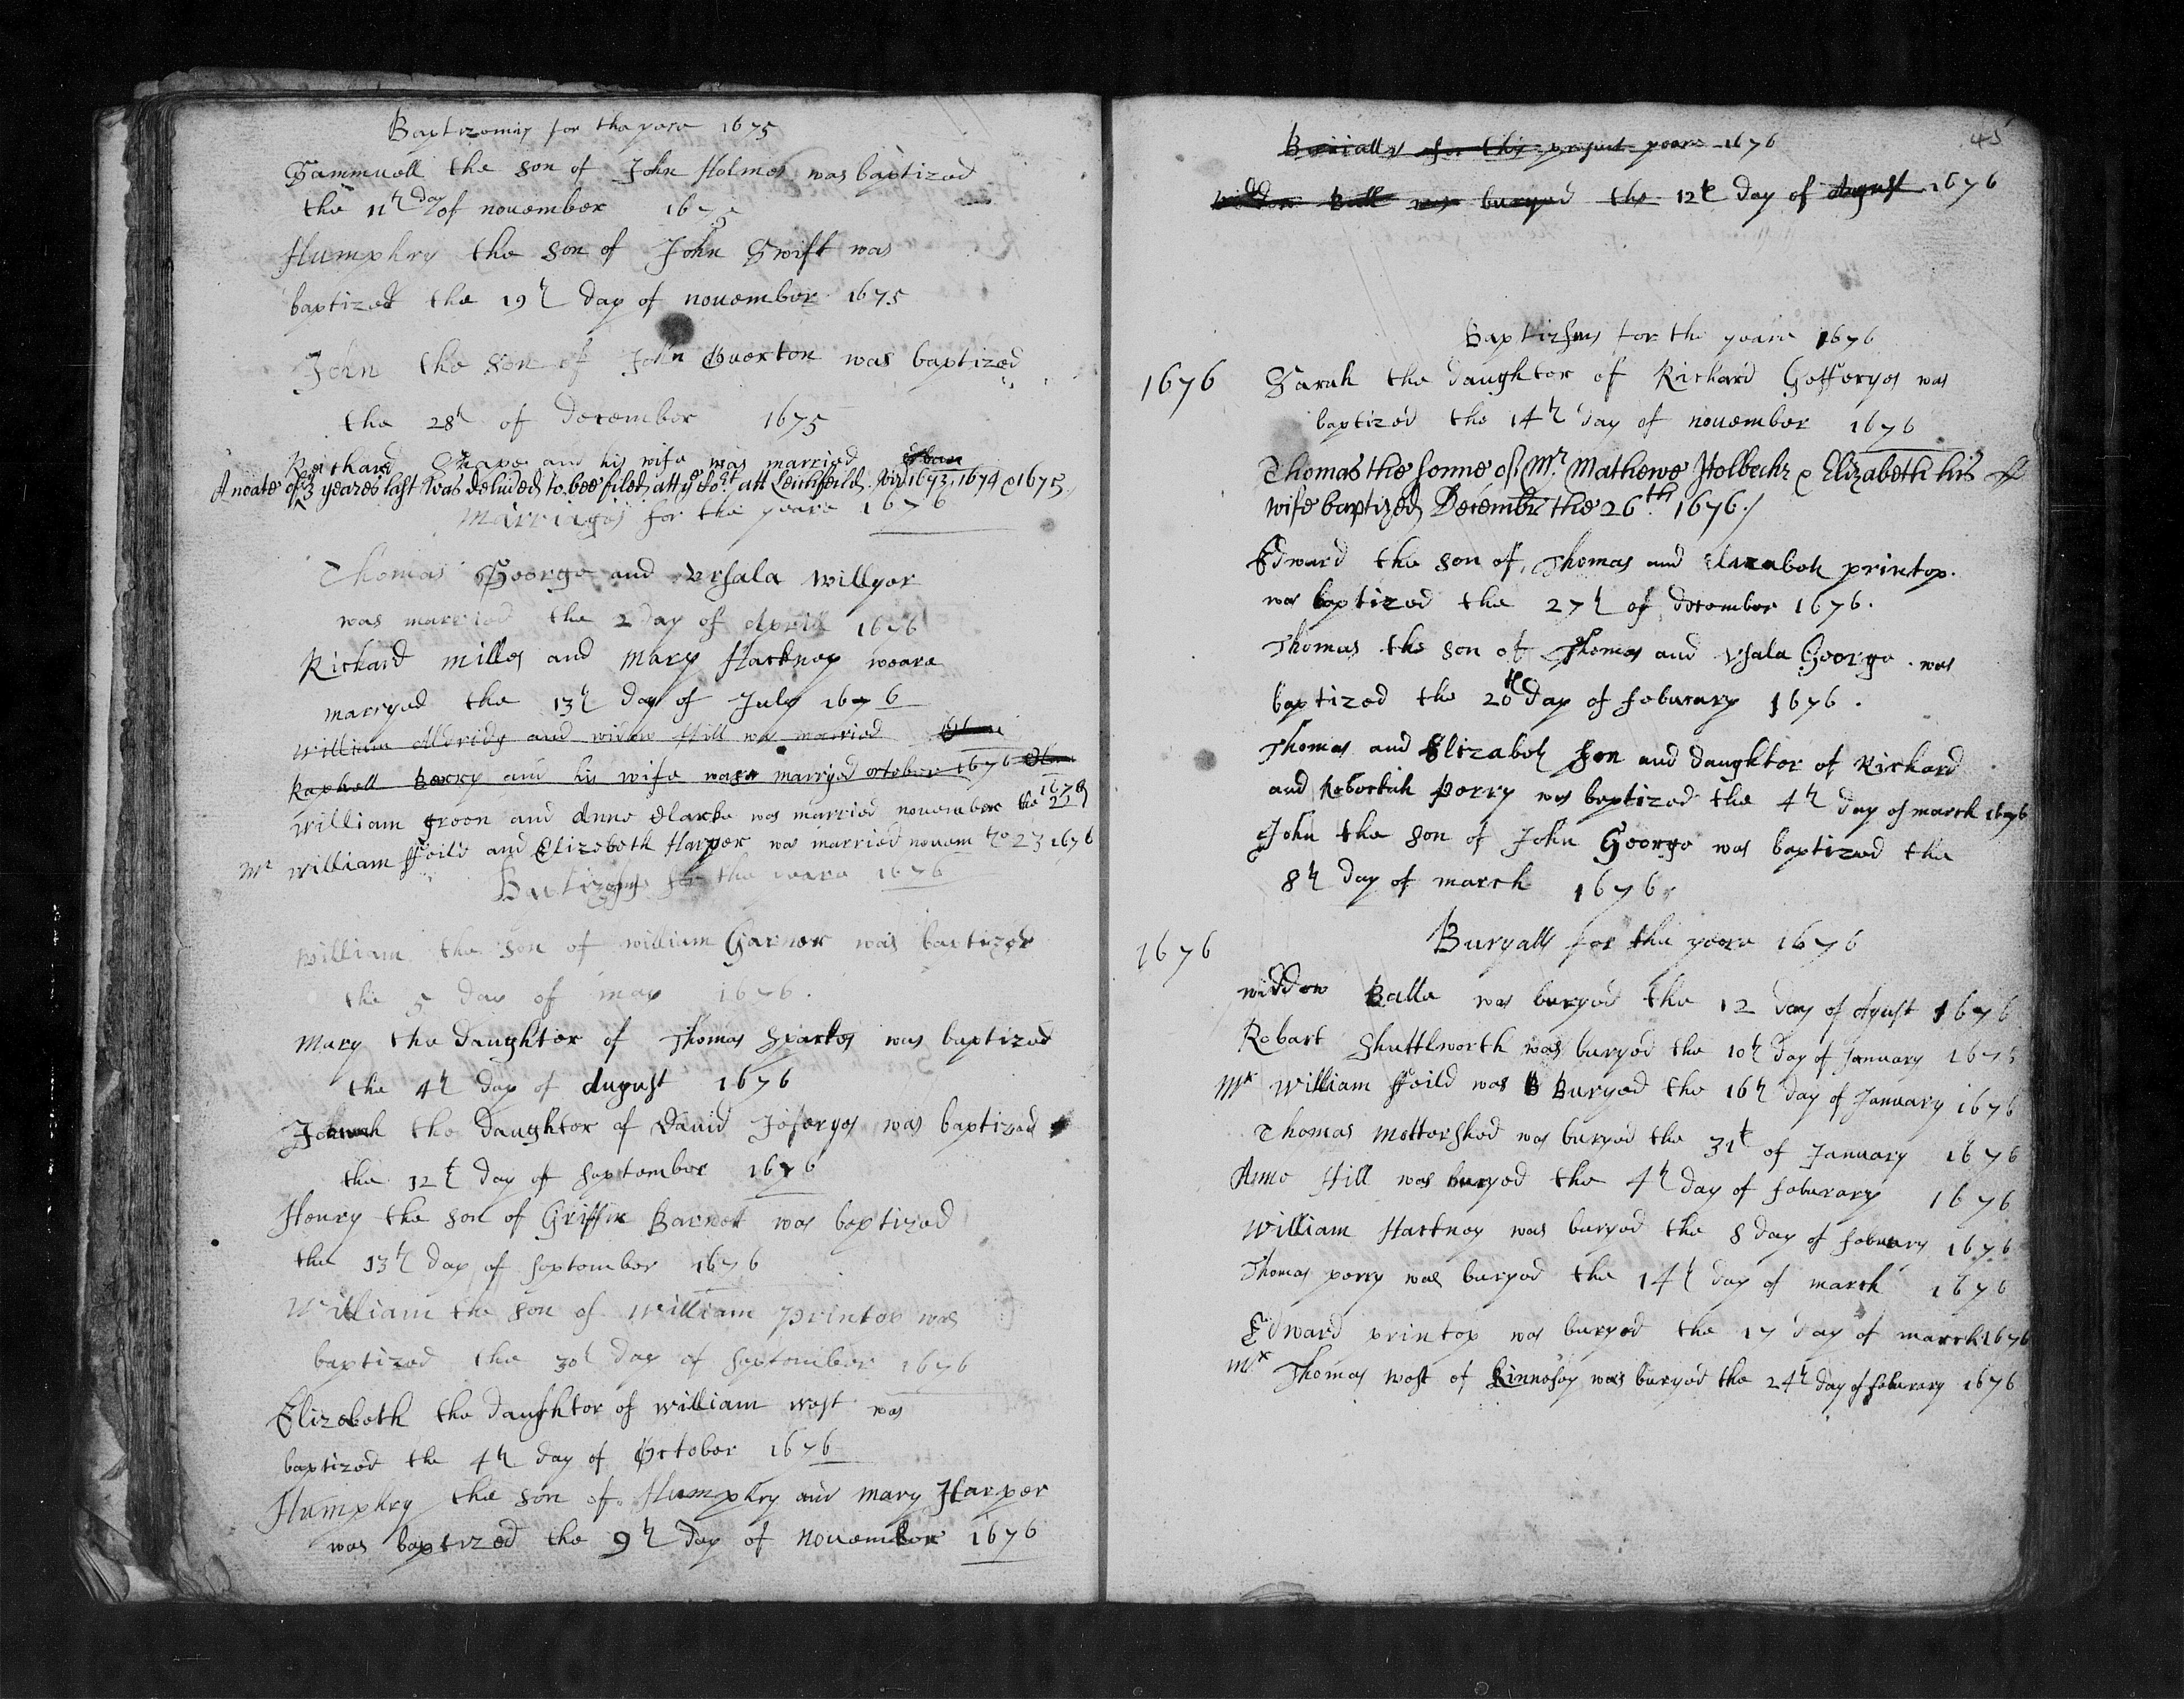 Baptizomes for the yere 1675
Sammuell the son of John Holmes was baptized
the 11th day of nouember 1675
Humphry the son of John Swift was
baptized the 19th day of nouember 1675
John the son of John Ouerton was baptized
the 28th of December 1675
Richard and his wife was married
A noate of ye 3 yeares last was deliuered to bee filed att ye att Leichfeild 1673, 1674 & 1675
Marriages for the yeare 1676
Thomas George and Vrsala Willyer
was married the 2 day of Aprill 1676
Richard milles and Mary Hackney weare
marryed the 13th day of July 1676
William Aldridg and widow Hill was married
Raphell Berry and his wife was marryed october 1676
William Green and Anne Clarke was married nouember the 22 1676
Mr William ffeild and Elizebeth Harper was married nouem the 23 1676
Batizems for the yeare 1676
William the son of William Garner was baptized
the 5 day of may 1676.
Mary the daughter of Thomas Sparkes was baptized
the 4th day of August 1676
the daughter of Dauid Joferyes was baptized
the 12th day of September 1676
Henry the son of Griffin Barnet was baptized
the 13th day of September 1676
William the son of William Printop was
baptized the 30th day of September 1676
Elizebeth the daughter of William West was
baptized the 4th day of October 1676
Humphry the son of Humphry and Mary Harper
was baptized the 9th day of Nouember 1676
45
Burialls for this present yeare 1676
widdow Ball was buryed the 12th day of Agust 1676
Baptizms for the yeare 1676
1676 Sarah the daughter of Richard Gefferyes was
baptized the 14th day of nouember 1676
Thomas the sonne of Mr Mathewe Holbeche & Elizabeth his
wife baptized Decembr the 26th 1676./
Edward the son of Thomas and Elizabeh printop.
was baptized the 27th of december 1676.
Thomas the son of Thomas and Vsala George was
baptized the 20th day of feburary 1676.
Thomas and Elizabeh son and daughter of Richard
and Rebeckah perry was baptized the 4th day of march 1676
John the son of John George was baptized the
8th day of march 1676
1676 Buryalls for the yeere 1676
widdow Balle was buryed the 12 day of Agust 1676
Robart Shuttlworth was buryed the 10th day of January 1675
Mr William ffeild was B Buryed the 16th day of January 1676
Thomas Mottershed was buryed the 31t of January 1676
Anne Hill was buryed the 4th day of feburary 1676
William Hackney was buryed the 8 day of feburary 1676
Thomas perry was buryed the 14th day of march 1676
Edward printop was buryed the 17 day of march 1676
Mr Thomas West of Kinnesey was buryed the 24th day of feburary 1676